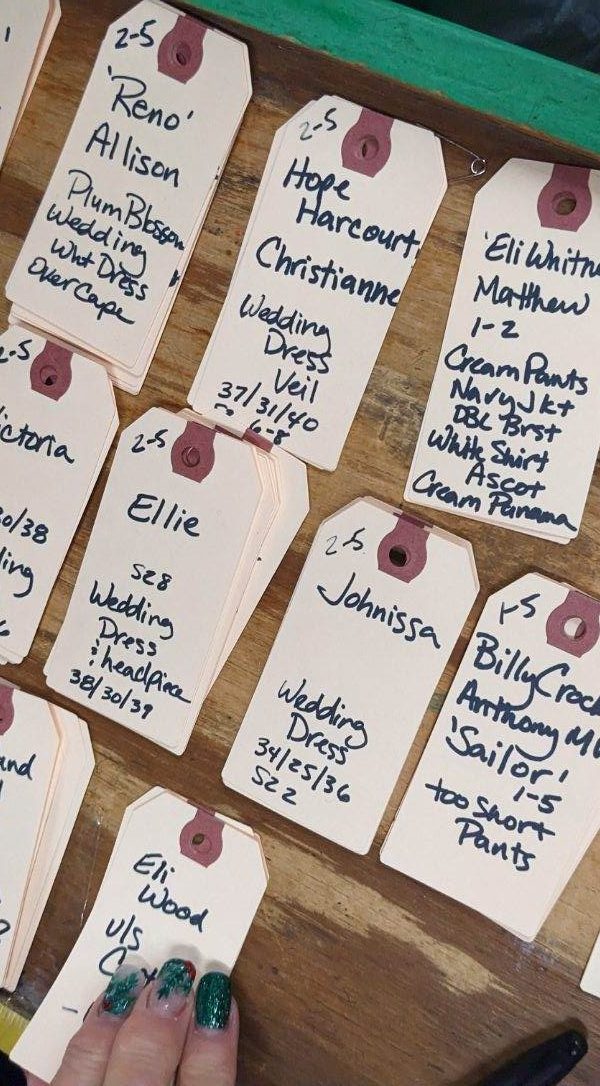 2-5
'Reno'
Allison
Plum Blossom
Wedding
Wht Dress
Over Cape
2-5
Hope
Harcourt
Christianne
Wedding
Dress
Veil
37/31/40
6-8
'Eli Whitn
Matthew
1-2
Cream Pants
Navy Jkt
DBL Brst
White Shirt
Ascot
Cream Panama
2-5
ictoria
30/38
ling
2-5
Ellie
SZ8
Wedding
Dress
& headpiece
38/30/39
2-5
Johnissa
Wedding
Dress
34/25/36
SZ 2
1-5
Billy Crock
Anthony
'Sailor'
1-5
too short
Pants
and
Eli
Wood
u/s